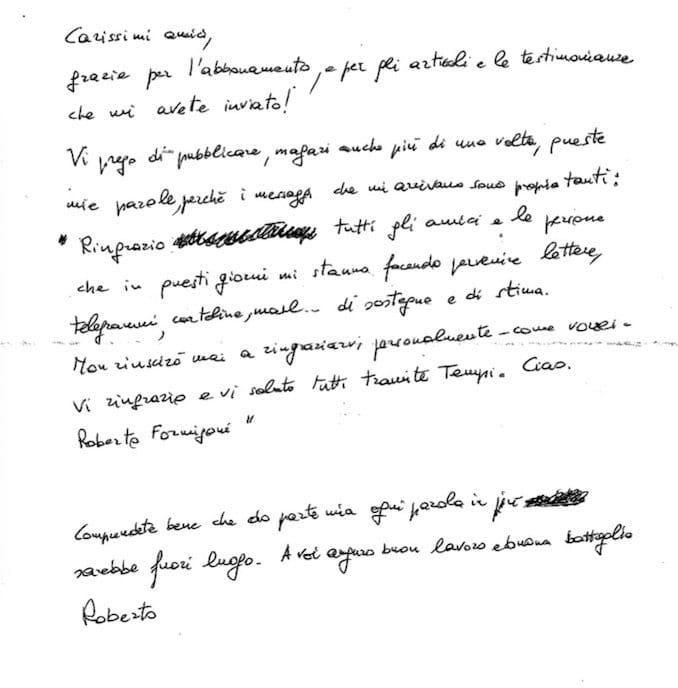 Carissimi amici,
grazie per l'abbonamento, e per gli articoli e le testimonianze
che mi avete inviato!
Vi prego di pubblicare, magari anche più di una volta, queste
mie parole, perchè i messaggi che mi arrivano sono proprio tanti:
"Ringrazio tutti gli amici e le persone
che in questi giorni mi stanno facendo pervenire lettere,
telegrammi, cartoline, mail... di sostegno e di stima.
Non riuscirò mai a ringraziarvi personalmente - come vorrei -
Vi ringrazio e vi saluto tutti tramite Tempi. Ciao.
Roberto Formigoni"
Comprendete bene che da parte mia ogni parola in più
sarebbe fuori luogo. A voi auguro buon lavoro e buona battaglia
Roberto